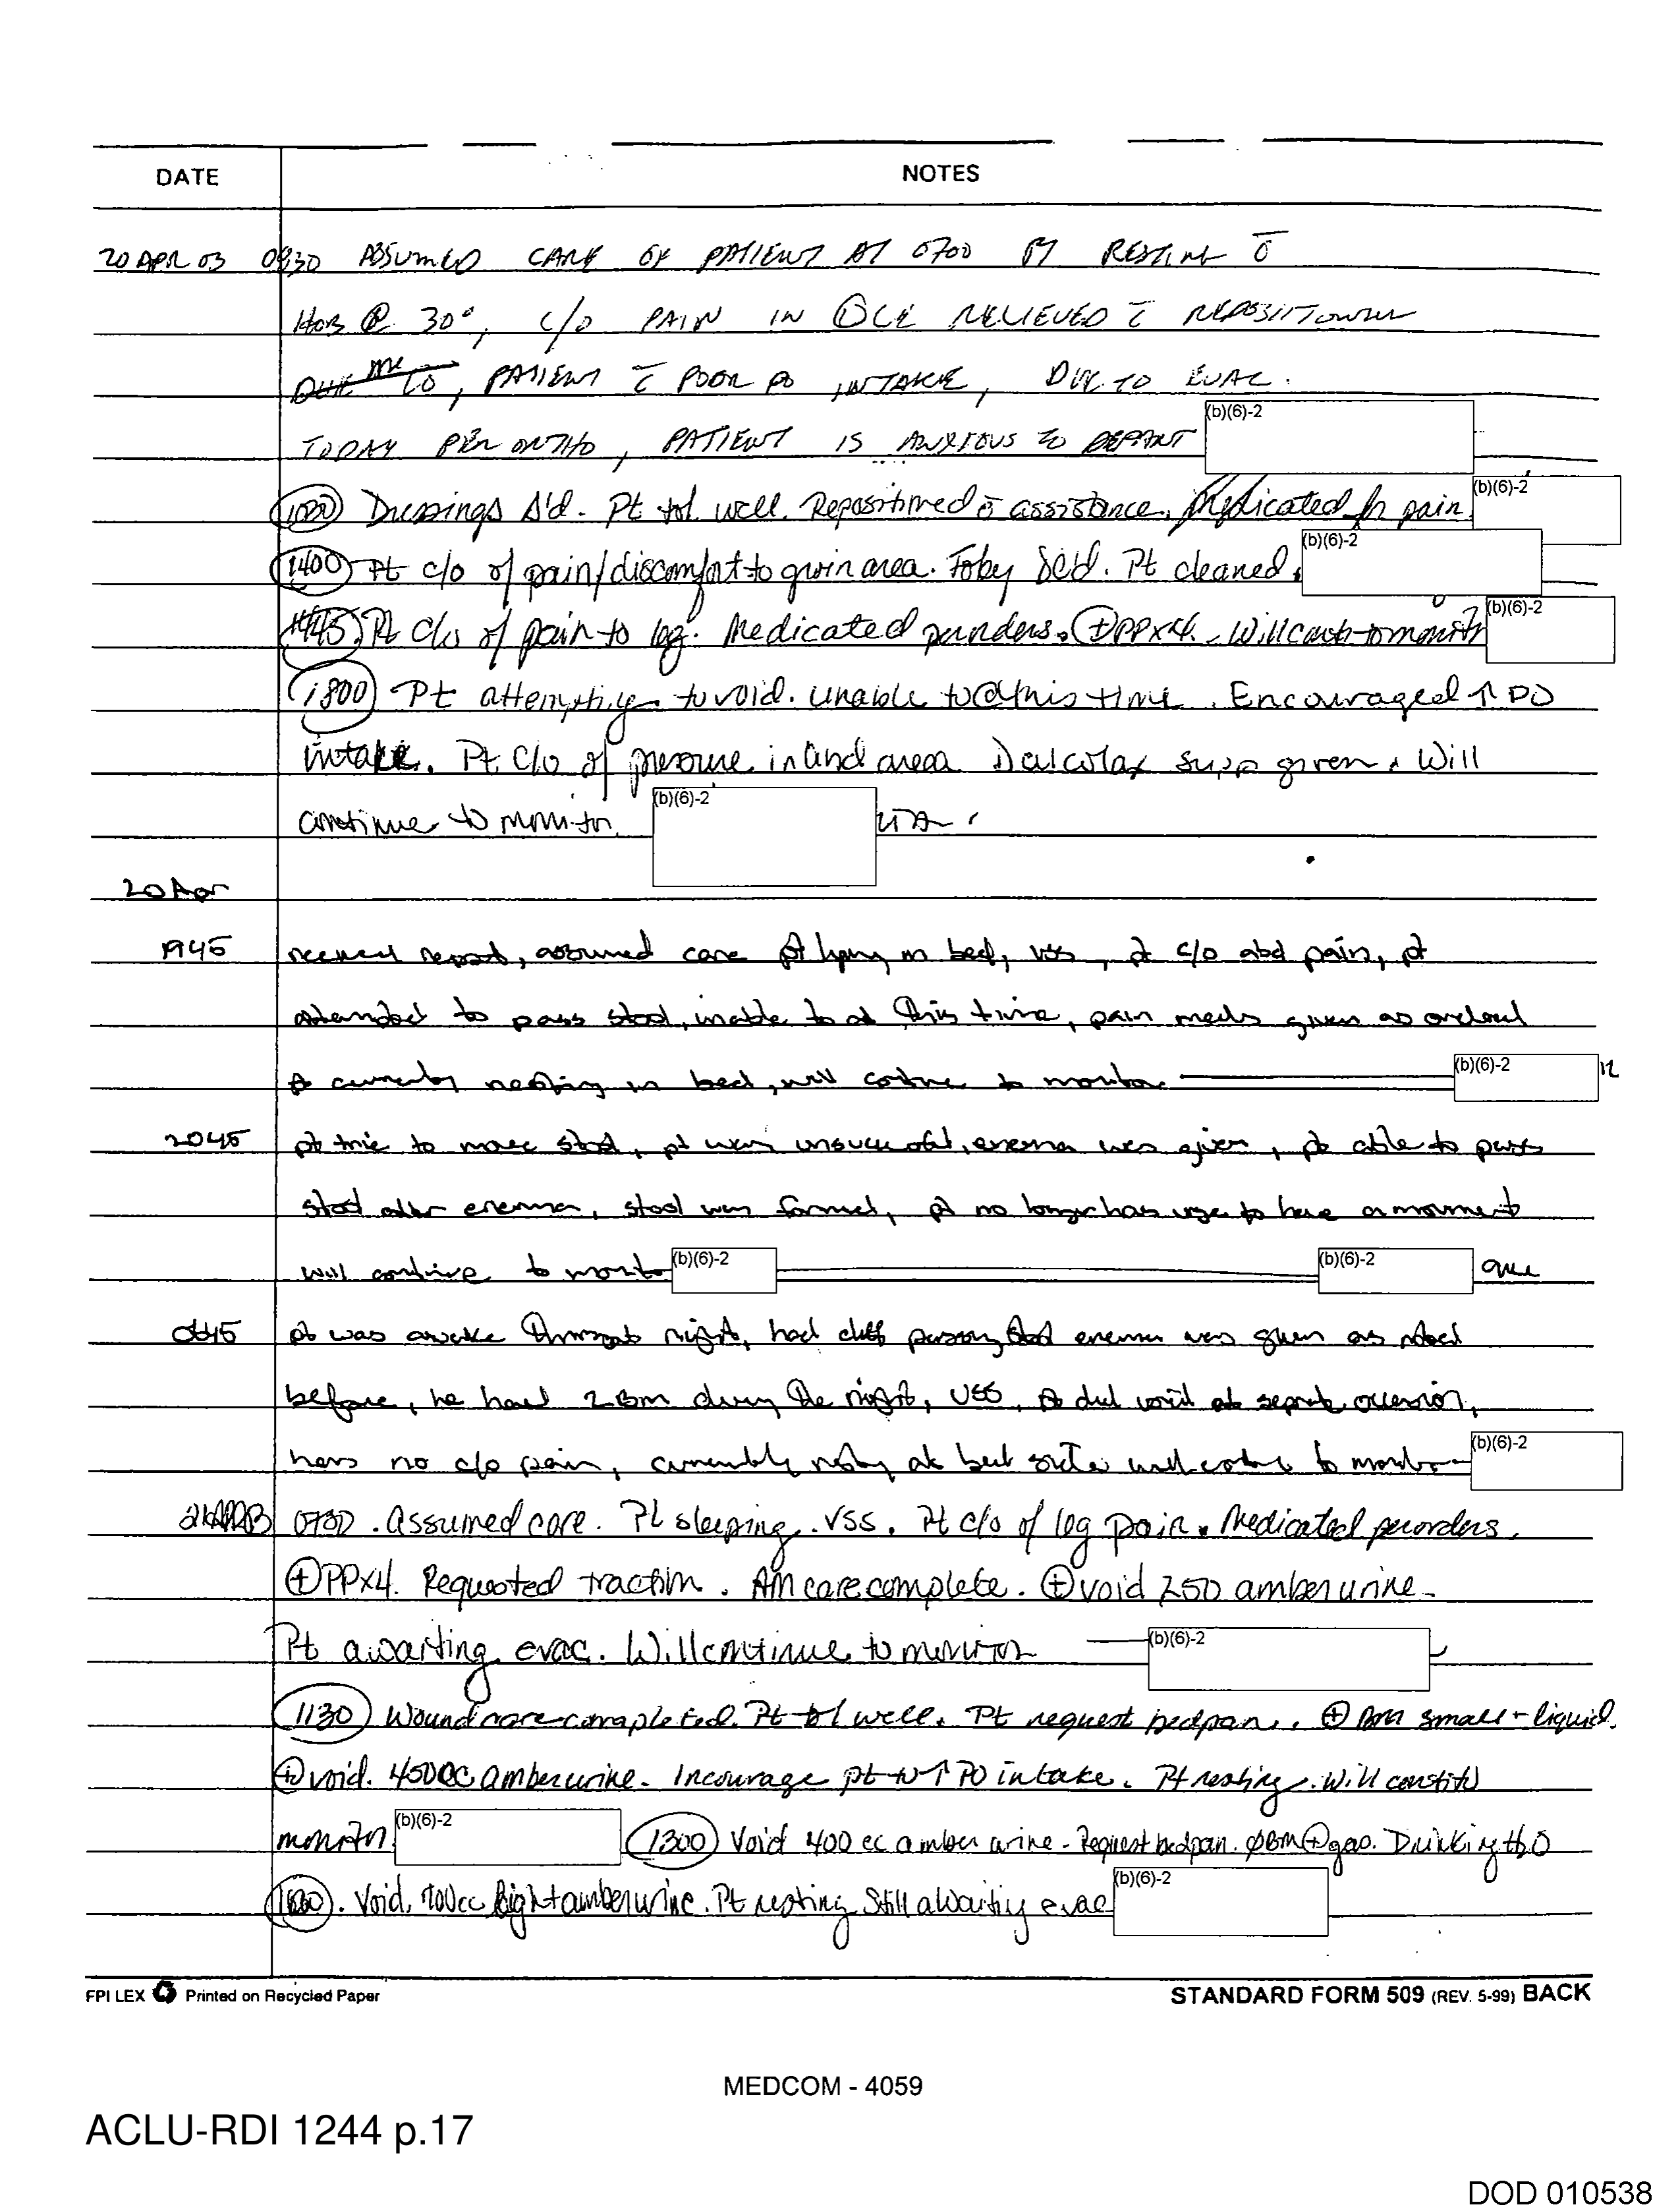 DATE NOTES
20 APR 03 0930 ASSUMED CARE OF PATIENT AT 0700 PT RESTING c̄
HOB @ 30°, c/o PAIN IN LE RELIEVED c̄ REPOSITIONING
DUE TO, PATIENT c̄ POOR PO INTAKE, DUE TO EVAC.
TODAY PER ORTHO, PATIENT IS ANXIOUS TO DEPART (b)(6)-2
Dressings Δ'd. Pt tol. well. Repositioned c̄ assistance. Medicated for pain (b)(6)-2
1400 Pt c/o of pain/discomfort to groin area. Foley Pt cleaned. (b)(6)-2
Pt c/o of pain to leg. Medicated per orders. ⊕PPx4. Will cont to monitor (b)(6)-2
1800 Pt attempting to void. Unable to @ this time. Encouraged ↑ PO
intake. Pt c/o of pressure in area Dulcolax supp given. Will
continue to monitor (b)(6)-2
20 Apr
1945 received report, assumed care pt lying in bed, VSS, pt c/o abd pain, pt
attempted to pass stool, unable to at this time, pain meds given as ordered
pt currently resting in bed, will continue to monitor (b)(6)-2
2045 pt trie to move stool, pt was unsuccessful, enema was given, pt able to pass
stool after enema, stool was formed, pt no longer has urge to have a movement
will continue to monitor (b)(6)-2 (b)(6)-2
pt was awake through night, had diff passing stool enema was given as noted
before, he had 2 BM during the night, VSS, pt did void at separate occasion,
has no c/o pain, currently resting at bed will continue to monitor (b)(6)-2
0730. Assumed care. Pt sleeping. VSS. Pt c/o of leg pain. Medicated per orders.
⊕PPx4. Requested traction. AM care complete. ⊕void 250 amber urine.
Pt awaiting evac. Will continue to monitor (b)(6)-2
1130 Wound care completed. Pt tol well. Pt request bedpan. ⊕ BM small + liquid.
⊕void. 450cc amber urine. Incourage pt to ↑ PO intake. Pt resting. Will
monitor (b)(6)-2 1300 Void 400 cc amber urine - Request bedpan. ØBM ⊕gas. Drinking H2O
Void. light amber urine. Pt resting. Still awaiting evac (b)(6)-2
FPI LEX Printed on Recycled Paper STANDARD FORM 509 (REV. 5-99) BACK
MEDCOM - 4059
ACLU-RDI 1244 p.17
DOD 010538